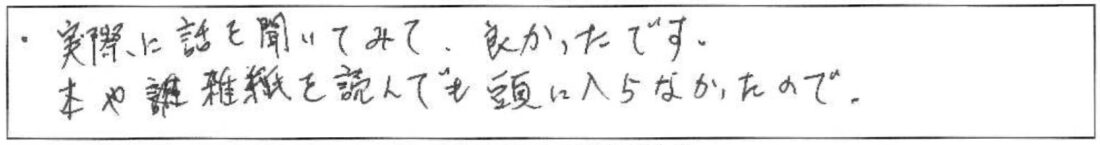 ・実際に話を聞いてみて、良かったです。
本や雑紙を読んでも頭に入らなかったので。